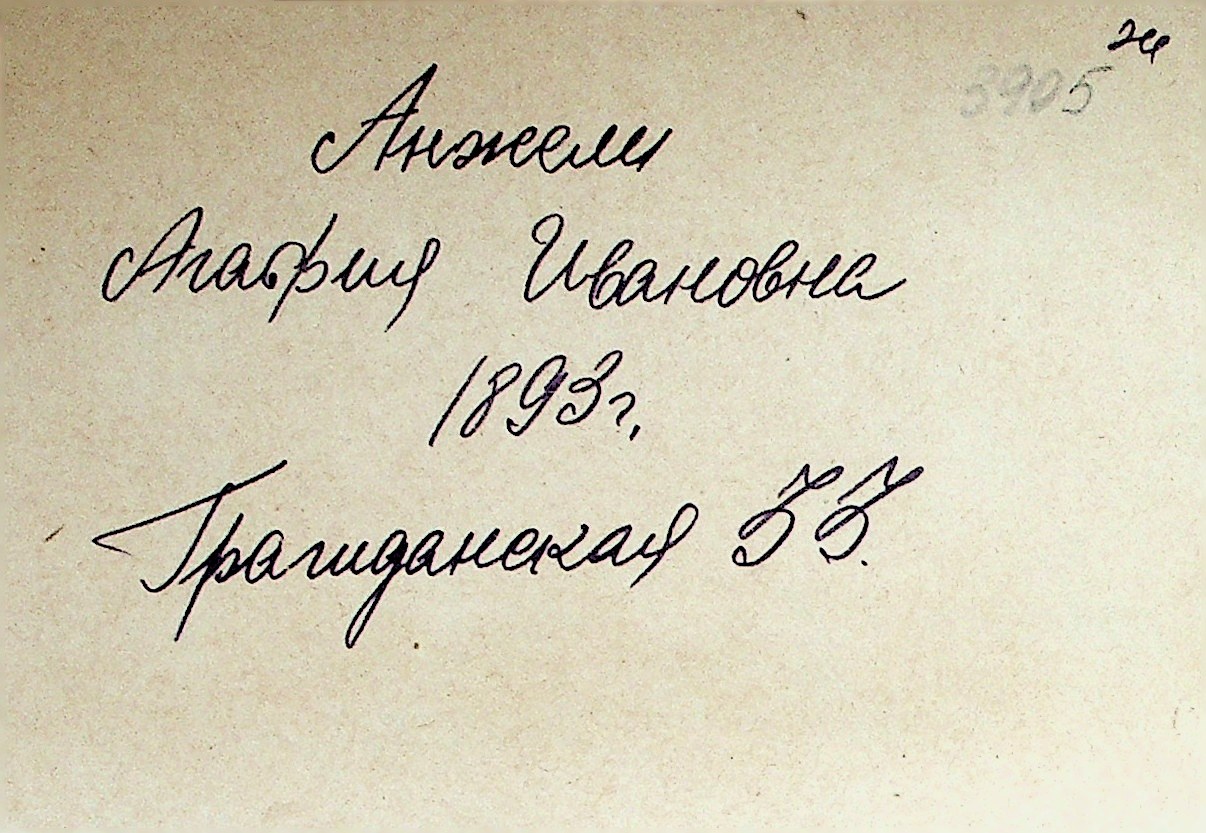 3905
Анжели
Агафия Ивановна
1893г.
Гражданская